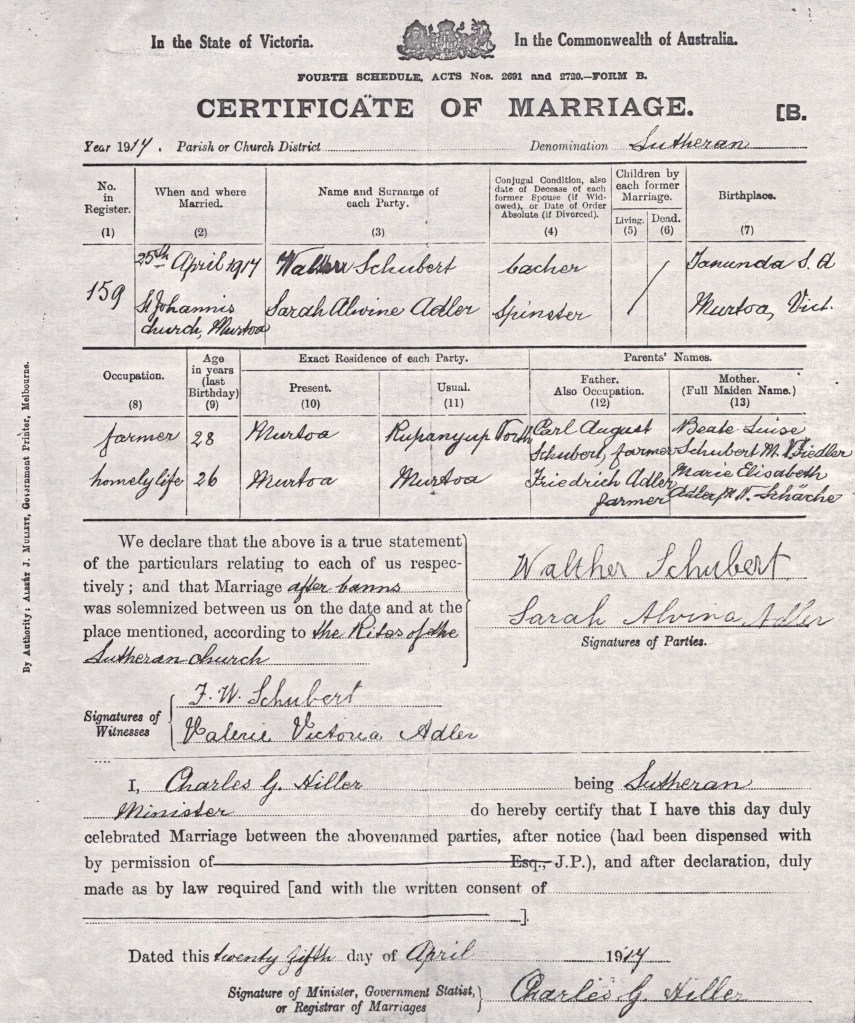 In the State of Victoria. In the Commonwealth of Australia.
FOURTH SCHEDULE, ACTS Nos. 2691 and 2720.—FORM B.
CERTIFICATE OF MARRIAGE. [B.
Year 1917. Parish or Church District Denomination Lutheran
No. in Register. (1)
When and where Married. (2)
Name and Surname of each Party. (3)
Conjugal Condition, also date of Decease of each former Spouse (if Widowed), or Date of Order Absolute (if Divorced). (4)
Children by each former Marriage.
Living. (5) Dead. (6)
Birthplace. (7)
159
25th April 1917
St Johannis
church, Murtoa
Walther Schubert
Sarah Alwine Adler
bacher
Spinster
Tanunda S. A
Murtoa, Vict.
Occupation. (8)
Age in years (last Birthday) (9)
Exact Residence of each Party.
Present. (10)
Usual. (11)
Parents' Names.
Father. Also Occupation. (12)
Mother. (Full Maiden Name.) (13)
farmer 28 Murtoa Rupanyup North
Carl August
Schubert, farmer
Beate Luise
Schubert M. N. Fiedler
homely life 26 Murtoa Murtoa
Friedrich Adler
farmer
Marie Elisabeth
Adler, M. N. Schäche
We declare that the above is a true statement
of the particulars relating to each of us respec-
tively; and that Marriage after banns
was solemnized between us on the date and at the
place mentioned, according to the Rites of the
Lutheran church
Walther Schubert
Sarah Alvina Adler
Signatures of Parties.
Signatures of Witnesses
F. W. Schubert
Valerie Victoria Adler
I, Charles G. Hiller being Lutheran
Minister do hereby certify that I have this day duly
celebrated Marriage between the abovenamed parties, after notice (had been dispensed with
by permission of Esq., J.P.), and after declaration, duly
made as by law required [and with the written consent of
].
Dated this twenty fifth day of April 1917
Signature of Minister, Government Statist,
or Registrar of Marriages
Charles G. Hiller
By Authority: ALBERT J. MULLETT, Government Printer, Melbourne.